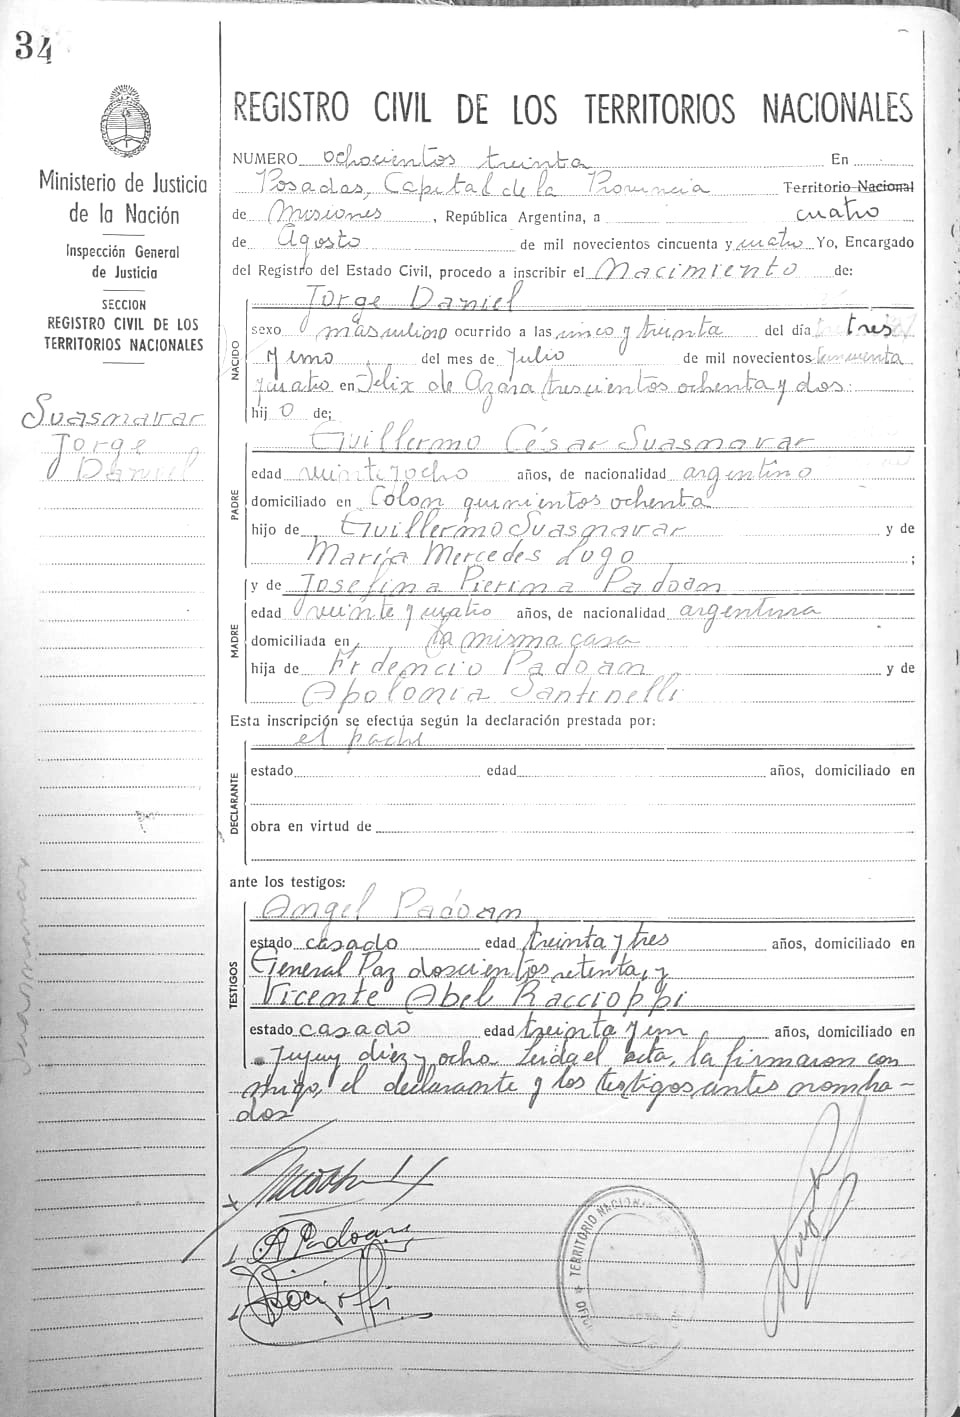 34
Ministerio de Justicia
de la Nación
Inspección General
de Justicia
SECCION
REGISTRO CIVIL DE LOS
TERRITORIOS NACIONALES
Suasnavar
Jorge
Daniel
REGISTRO CIVIL DE LOS TERRITORIOS NACIONALES
NUMERO ochocientos treinta En
Posadas, Capital de la Provincia Territorio Nacional
de Misiones, República Argentina, a cuatro
de Agosto de mil novecientos cincuenta y cuatro Yo, Encargado
del Registro del Estado Civil, procedo a inscribir el Nacimiento de:
NACIDO
Jorge Daniel
sexo masculino ocurrido a las cinco y treinta del día tres
y uno del mes de Julio de mil novecientos cincuenta
y cuatro en Félix de Azara trescientos ochenta y dos.
hijo de;
PADRE
Guillermo César Suasnavar
edad veintiocho años, de nacionalidad argentino
domiciliado en Colón quinientos ochenta
hijo de Guillermo Suasnavar y de
María Mercedes Lugo ;
MADRE
y de Josefina Pierina Padoan
edad veinte y cuatro años, de nacionalidad argentina
domiciliada en la misma casa
hija de Padoan y de
Apolonia Santinelli
Esta inscripción se efectúa según la declaración prestada por:
DECLARANTE
el padre
estado edad años, domiciliado en
obra en virtud de
ante los testigos:
TESTIGOS
Angel Padoan
estado casado edad treinta y tres años, domiciliado en
General Paz doscientos setenta, y
Vicente Abel Raccioppi
estado casado edad treinta y un años, domiciliado en
Jujuy diez y ocho Leida el acta, la firmaron con
migo, el declarante y los testigos antes nombra-
dos
A Padoan
TERRITORIO NACIONAL